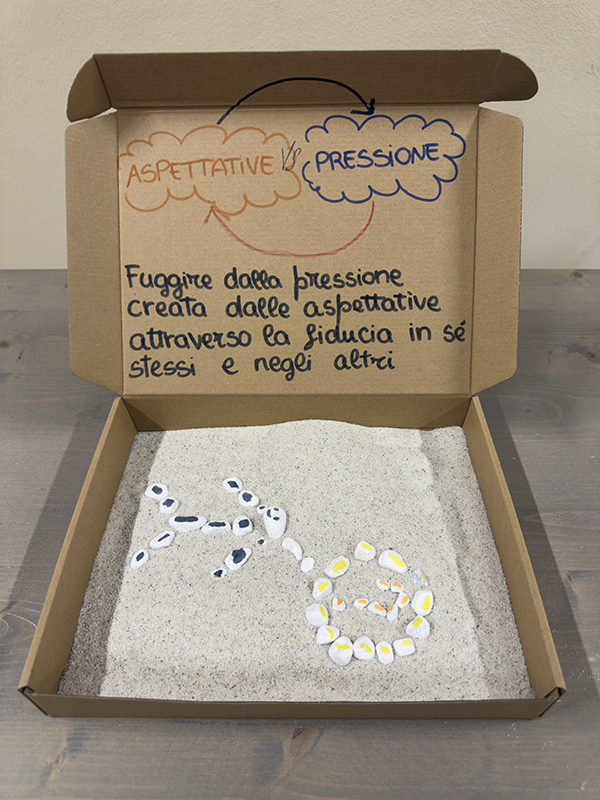 ASPETTATIVE VS PRESSIONE
Fuggire dalla pressione
creata dalle aspettative
attraverso la fiducia in sé
stessi e negli altri